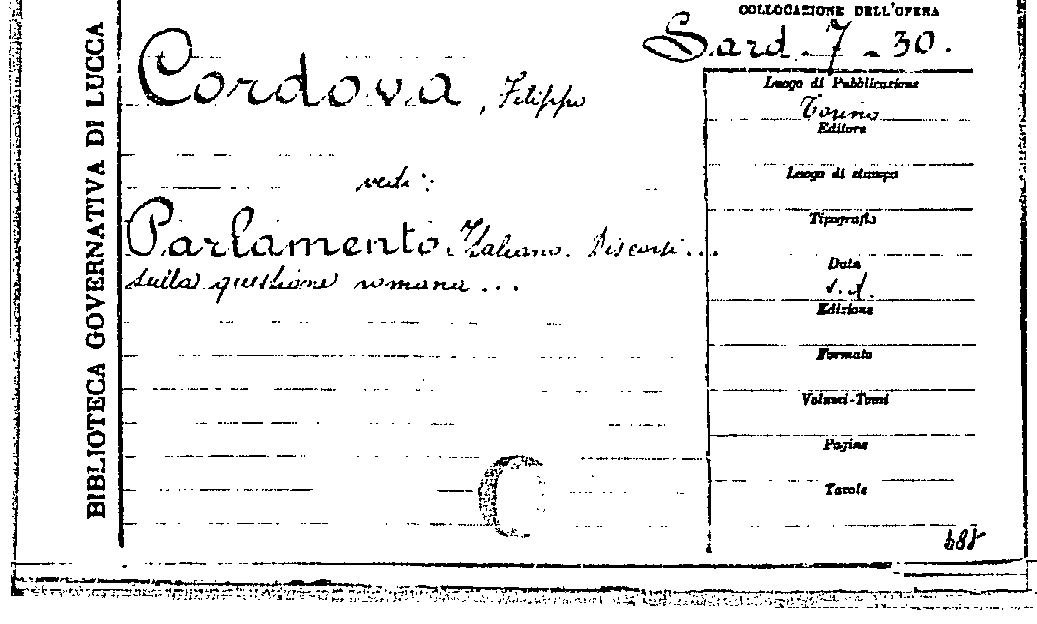 BIBLIOTECA GOVERNATIVA DI LUCCA
COLLOCAZIONE DELL'OPERA
Sard. 7 - 30.
Cordova, Filippo
vedi:
Parlamento Italiano. Discorsi...
sulla questione romana...
Luogo di Pubblicazione
Torino
Editore
Luogo di stampa
Tipografia
Data
s.d.
Edizione
Formato
Volumi-Tomi
Pagine
Tavole